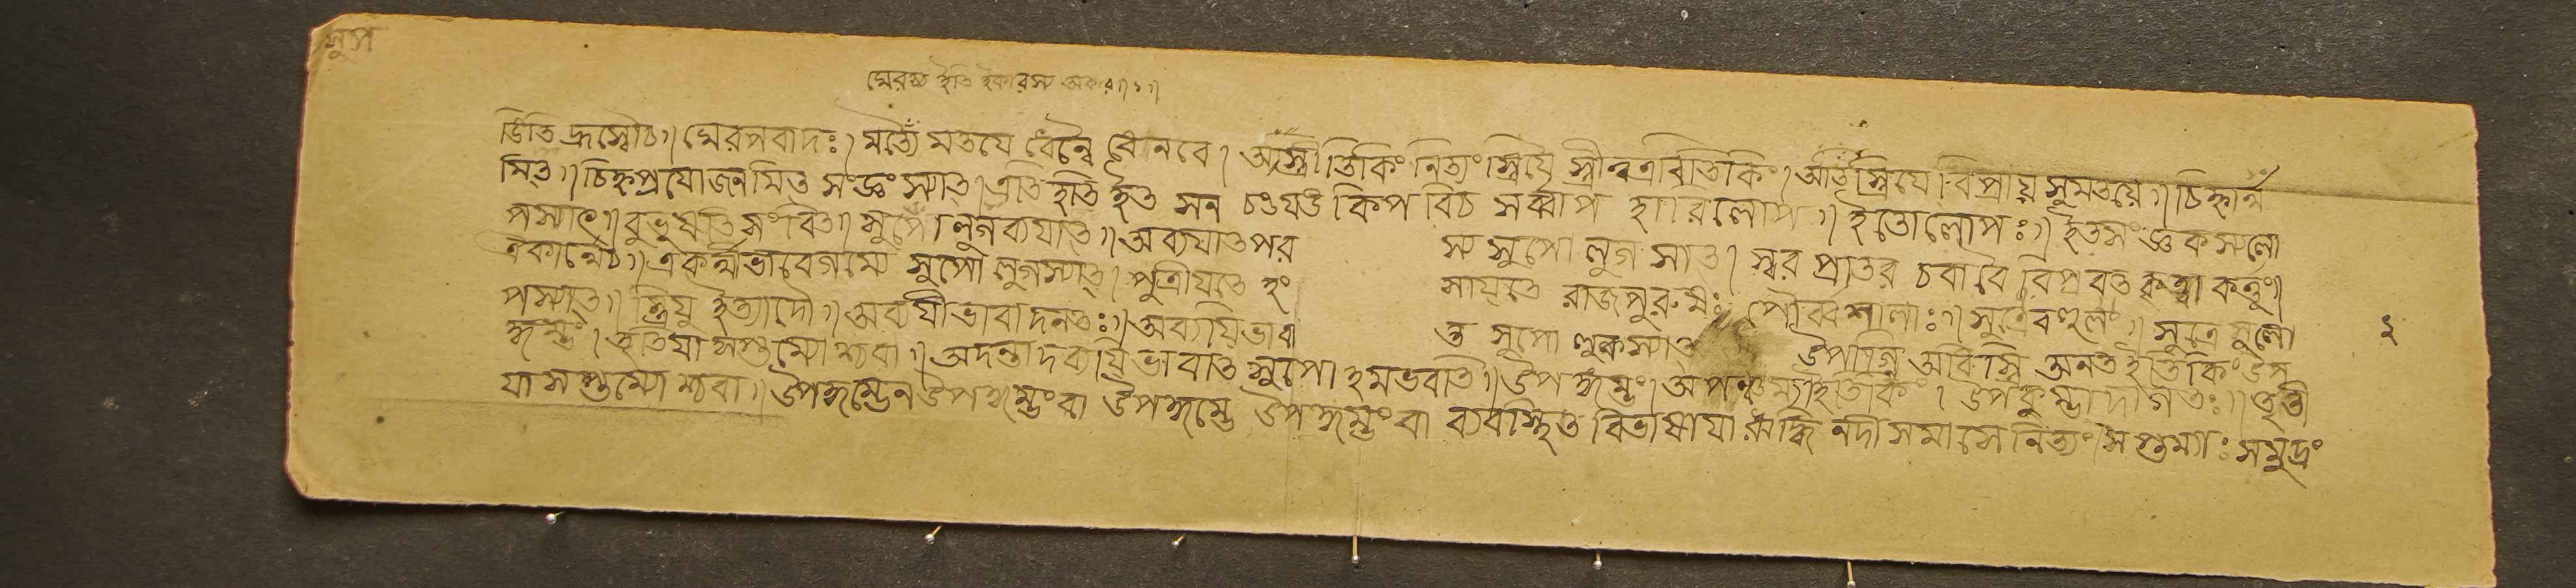 সুপ
ঘেরপ্ত ইতি ইকারস্য অকার॥১॥
ঙিতি হ্রস্বৌচ॥ ঘেরপবাদঃ। মত্যৈ মতয়ে ধেন্বৈ ধেনবে। অস্ত্রীতিকিং নিত্যং স্ত্রিয়ৈ স্ত্রীব্রএবিতিকিং। অতিস্ত্রিয়ে বিপ্রায় সুমতয়ে॥ চিহ্নার্থ
মিত্॥ চিহ্নপ্রযোজনমিত্ত সংজ্ঞং স্যাত্। এতি ইতি ইত সন চণ্ যঙ কিপ বিচ সর্ব্বাপ হারি লোপ॥ ইতোলোপঃ॥ ইতসংজ্ঞকস্যলো
পস্যাৎ॥ বুভূষতি সংবিত॥ সুপো লুগব্যযাত॥ অব্যযাতপর স্য সুপো লুগ স্যাত। স্বর প্রাতর চবাবৈ বিপ্রবত্ত কৃত্বা কর্ত্তুং।
একার্থেচ॥ একর্থ্মীভাবেগম্যে সুপো লুগস্যাত্। পুত্রীযতে হং সায়তে রাজপুরুষঃ পৌর্ব্বশালাঃ॥ সুত্রেবহুলং॥ সূত্রে সুলো
পস্যাত্॥ স্ত্রিযু ইত্যাদৌ॥ অব্যযীভাবাদনতঃ॥ অব্যয়িভাবা ত্ত সুপো লুকস্যাত উপাগ্নি অধিস্ত্রি অনত ইতিকিং উপ
কুম্ভং। তৃতিয়া সপ্তম্যো শ্চবা॥ অদন্তাদব্যয়িভাবাত সুপো হমভবতি॥ উপকুম্ভং। অপঞ্চম্যাইতিকিং। উপকুম্ভাদাগতঃ॥ তৃতী
যা সপ্তম্যো শ্চবা॥ উপকুম্ভেন উপকুম্ভংবা উপকুম্ভে উপকুম্ভংবা ব্যবস্থিত বিভাষাযা ঋদ্ধি নদীসমাসে নিত্যং সপ্তম্যাঃ সমুদ্রং
২